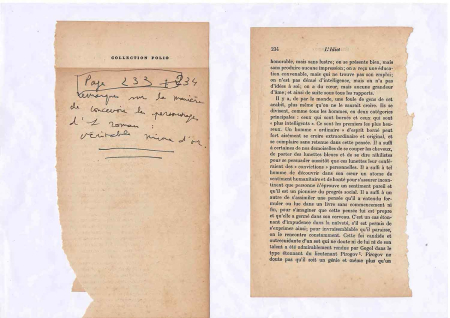 COLLECTION FOLIO
Page 233 + 234
remarque sur la manière
de concevoir le personnages
d'1 roman :
véritable mine d'or.
234
L'Idiot
honorable, mais sans lustre; on se présente bien, mais
sans produire aucune impression; on a reçu une éducation
convenable, mais qui ne trouve pas son emploi;
on n'est pas dénué d'intelligence, mais on n'a pas
d'idées à soi; on a du cœur, mais aucune grandeur
d'âme; et ainsi de suite sous tous les rapports.
Il y a, de par le monde, une foule de gens de cet
acabit, plus même qu'on ne le saurait croire. Ils se
divisent, comme tous les hommes, en deux catégories
principales : ceux qui sont bornés et ceux qui sont
« plus intelligents ». Ce sont les premiers les plus heureux.
Un homme « ordinaire » d'esprit borné peut
fort aisément se croire extraordinaire et original, et
se complaire sans retenue dans cette pensée. Il a suffi
à certaines de nos demoiselles de se couper les cheveux,
de porter des lunettes bleues et de se dire nihilistes
pour se persuader aussitôt que ces lunettes leur conféraient
des « convictions » personnelles. Il a suffi à tel
homme de découvrir dans son cœur un atome de
sentiment humanitaire et de bonté pour s'assurer incontinent
que personne n'éprouve un sentiment pareil et
qu'il est un pionnier du progrès social. Il a suffi à un
autre de s'assimiler une pensée qu'il a entendu formuler
ou lue dans un livre sans commencement ni
fin, pour s'imaginer que cette pensée lui est propre
et qu'elle a germé dans son cerveau. C'est un cas étonnant
d'impudence dans la naïveté, s'il est permis de
s'exprimer ainsi; pour invraisemblable qu'il paraisse,
on le rencontre constamment. Cette foi candide et
outrecuidante d'un sot qui ne doute ni de lui ni de son
talent a été admirablement rendue par Gogol dans le
type étonnant du lieutenant Pirogov¹. Pirogov ne
doute pas qu'il soit un génie et même plus qu'un